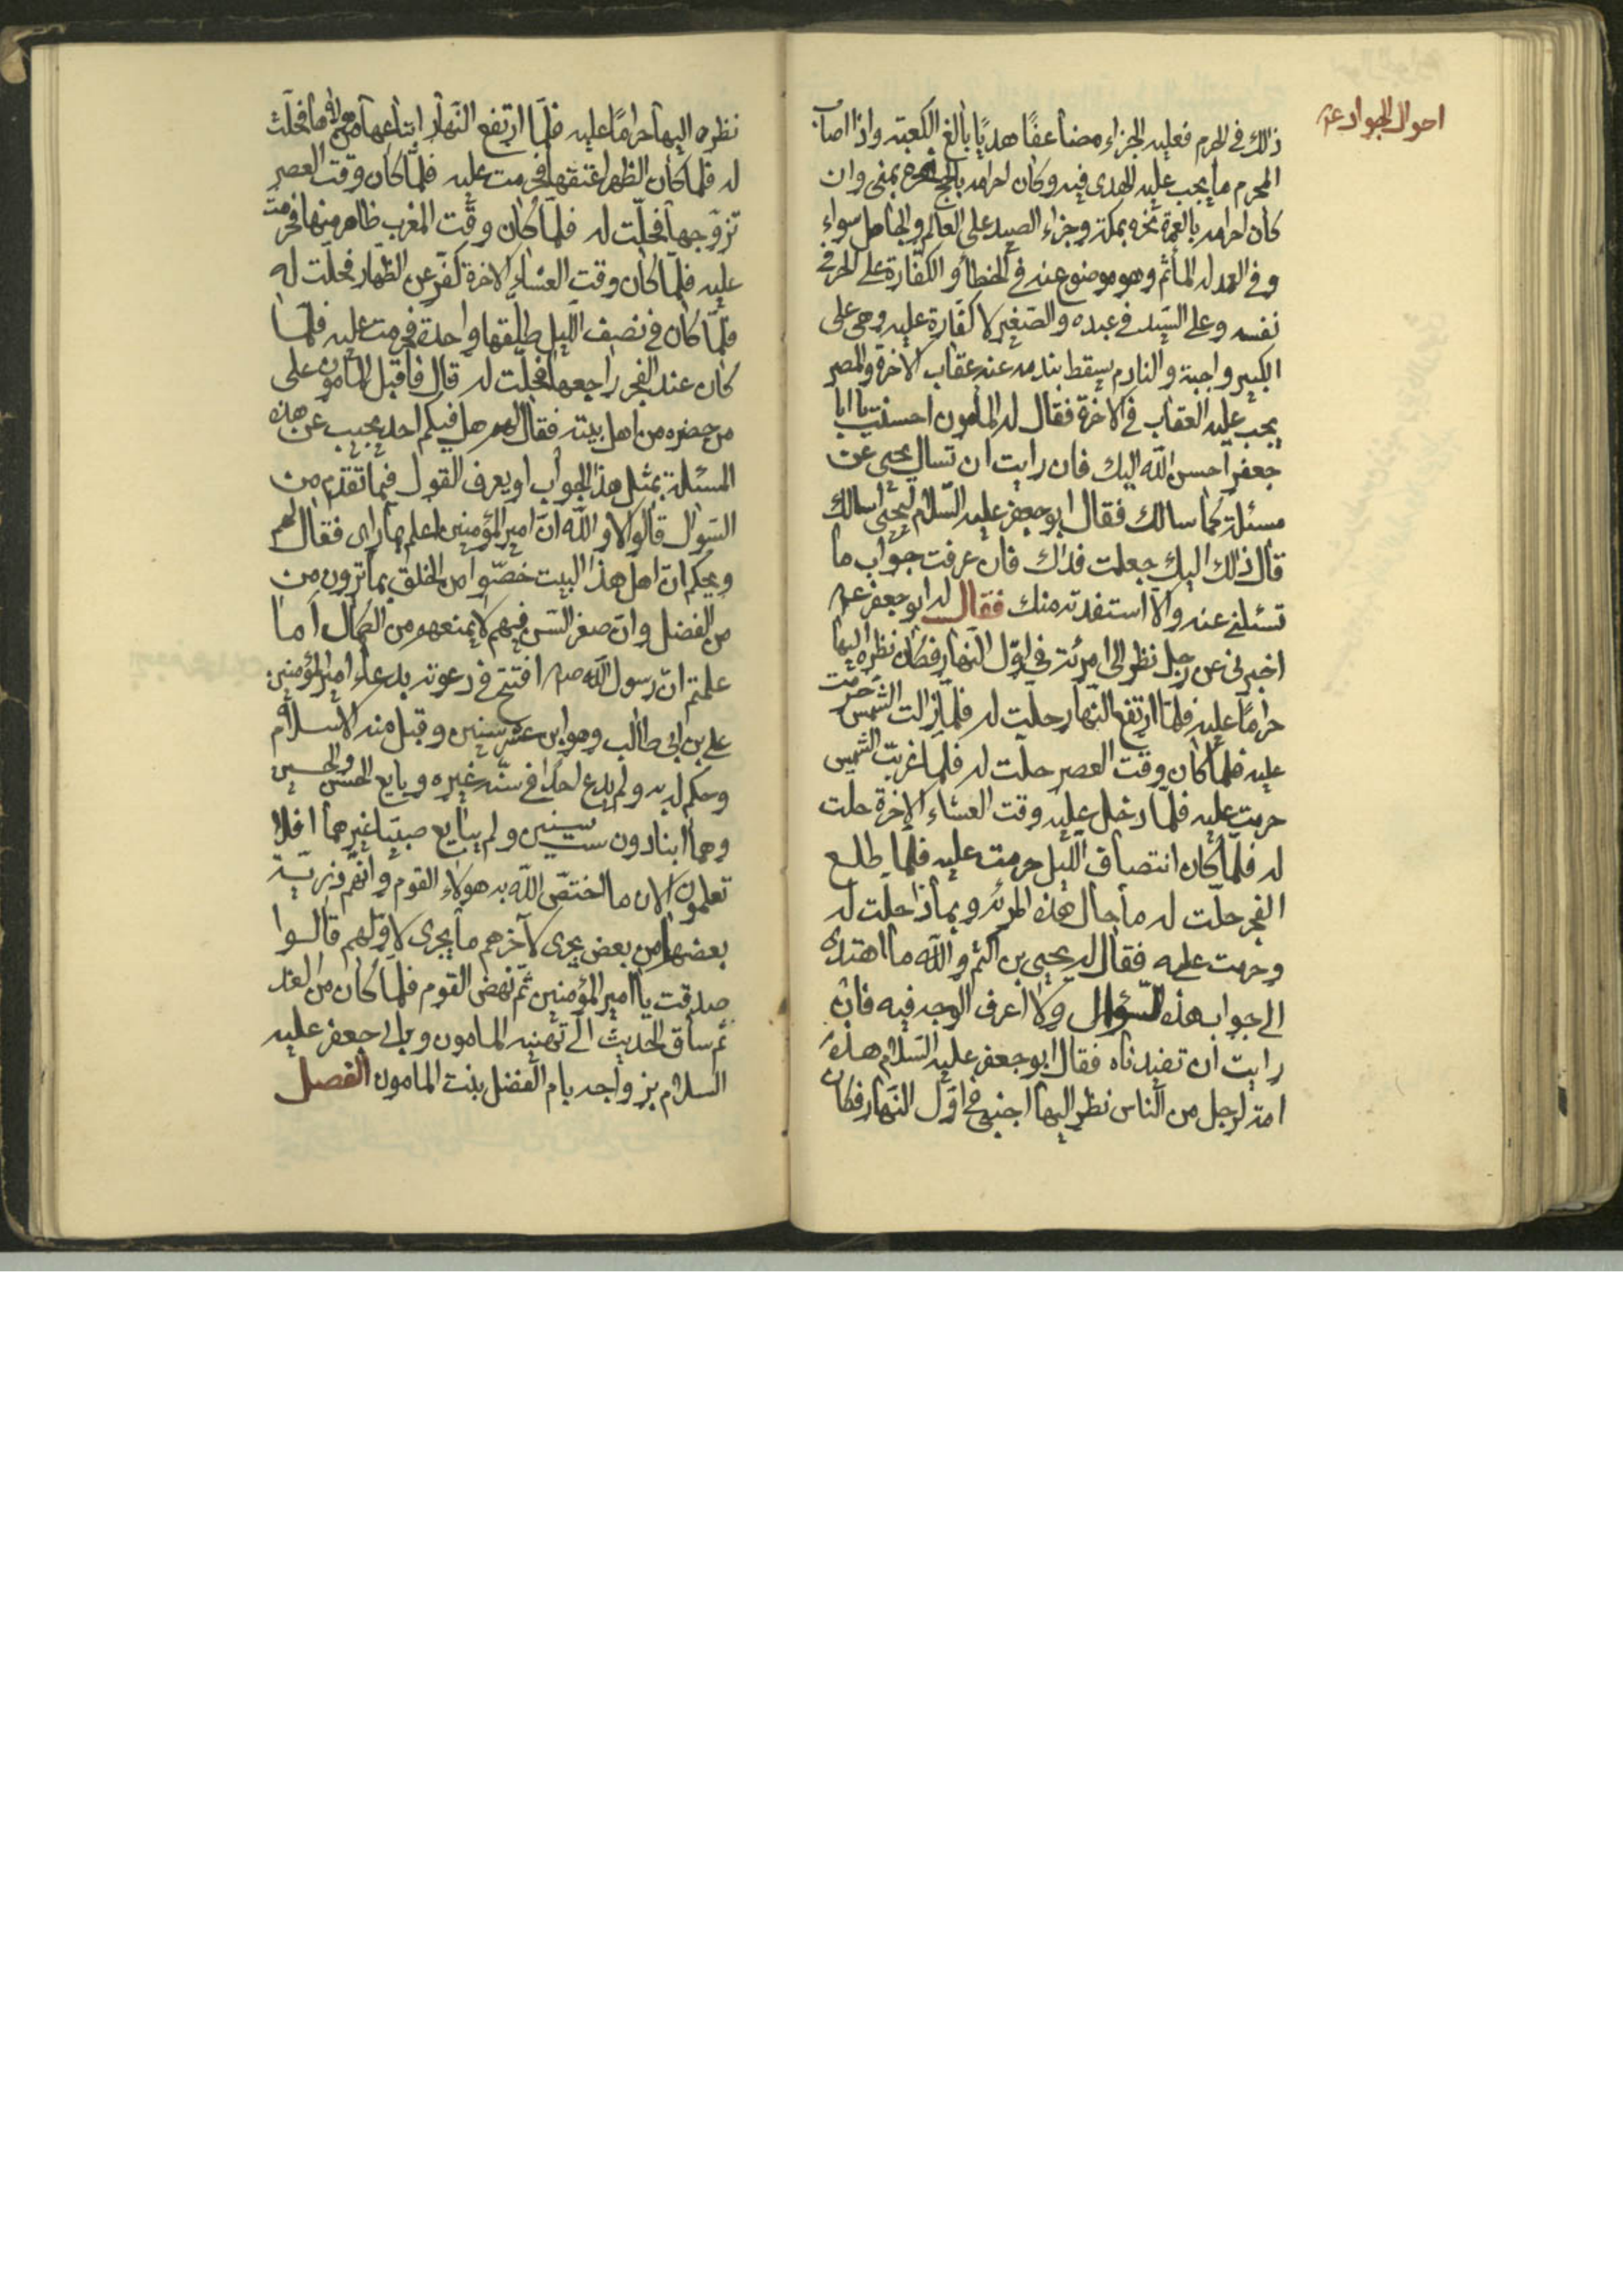 احوال الجواد عم
ذلك في الحرم فعليه الجزاء مضاعفًا هديًا بالغ الكعبة واذا اصاب
المحرم ما يجب عليه الهدى فيه وكان احرامه بالحج نحره بمنى وان
كان احرامه بالعمرة نحره بمكة وجزاء الصيد على العالم والجاهل سواء
وفي العمد له المأثم وهو موضوع عنه في الخطأ والكفارة على الحر في
نفسه وعلى السيد في عبده والصغير لا كفارة عليه وهي على
الكبير واجبة والنادم يسقط بندمه عنه عقاب الاخرة والمصر
يجب عليه العقاب في الاخرة فقال له المأمون احسنت يا ابا
جعفر احسن الله اليك فان رايت ان تسال يحيى عن
مسئلة كما سالك فقال ابو جعفر عليه السلام ليحيى اسالك
قال ذلك اليك جعلت فداك فان عرفت جواب ما
تسئلني عنه والا استفدته منك فقال له ابو جعفر عم
اخبرني عن رجل نظر الى امرئة في اول النهار فكان نظره اليها
حرامًا عليه فلما ارتفع النهار حلت له فلما زالت الشمس حرمت
عليه فلما كان وقت العصر حلت له فلما غربت الشمس
حرمت عليه فلما دخل عليه وقت العشاء الاخرة حلت
له فلما كان انتصاف الليل حرمت عليه فلما طلع
الفجر حلت له ما حال هذه المرئة وبماذا حلت له
وحرمت عليه فقال له يحيى بن اكثم والله ما اهتدى
الى جواب هذه السؤال ولا اعرف الوجه فيه فان
رايت ان تفيدناه فقال ابو جعفر عليه السلام هذه
امة لرجل من الناس نظر اليها اجنبي في اول النهار فكان
نظره اليها حرامًا عليه فلما ارتفع النهار ابتاعها من مولاها فحلت
له فلما كان الظهر اعتقها فحرمت عليه فلما كان وقت العصر
تزوجها فحلت له فلما كان وقت المغرب ظاهر منها فحرمت
عليه فلما كان وقت العشاء الاخرة كفر عن الظهار فحلت له
فلما كان في نصف الليل طلقها واحدة فحرمت عليه فلما
كان عند الفجر راجعها فحلت له قال فاقبل المأمون على
من حضره من اهل بيته فقال لهم هل فيكم احد يجيب عن هذه
المسئلة بمثل هذا الجواب او يعرف القول فيما تقدم من
السوال قالوا لا والله ان امير المؤمنين اعلم بما راى فقال لهم
ويحكم ان اهل هذا البيت خصوا من الخلق بما ترون من
من الفضل وان صغر السن فيهم لا يمنعهم من الكمال اما
علمتم ان رسول الله صم افتتح في دعوته بدعاء امير المؤمنين
علي بن ابي طالب وهو ابن عشر سنين وقبل منه الاسلام
وحكم له به ولم يدع احدًا في سنه غيره وبايع الحسن والحسين
وهما ابنا دون ست سنين ولم يبايع صبيًا غيرهما افلا
تعلمون الان ما اختص الله به هولاء القوم وانهم ذرية
بعضها من بعض يجرى لآخرهم ما يجرى لاولهم قالوا
صدقت يا امير المؤمنين ثم نهض القوم فلما كان من الغد
ثم ساق الحديث الى تهنيه المامون وابي جعفر عليه
السلام بزواجه بام الفضل بنت المامون الفصل